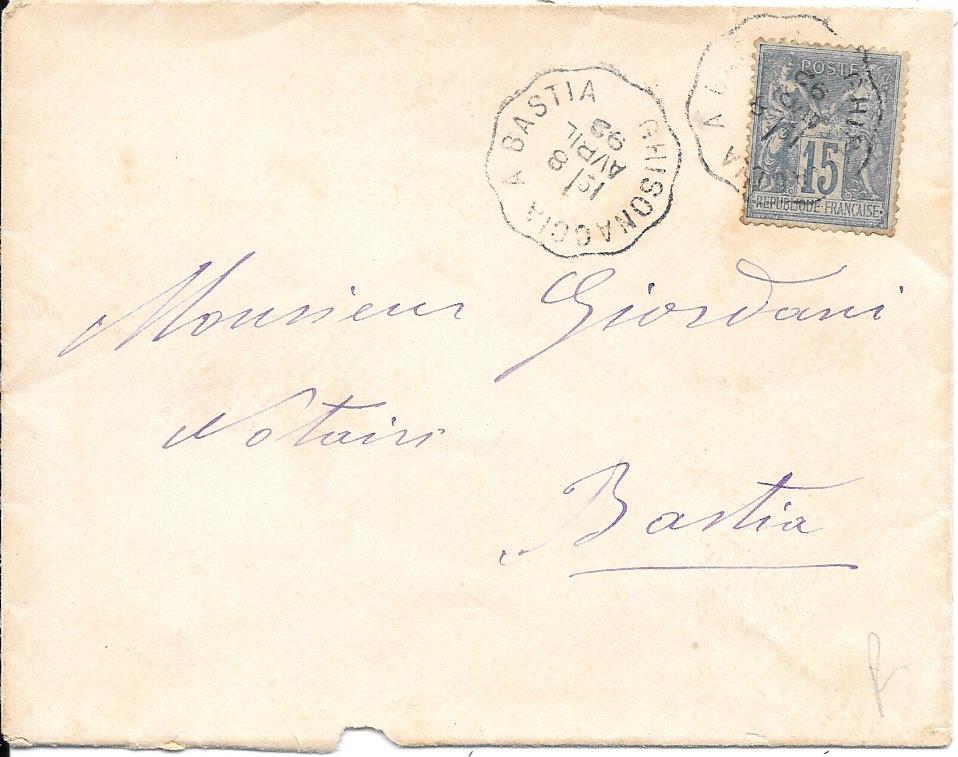 GHISONACCIA A BASTIA
1º/
8
AVRIL
92
POSTES
15
REPUBLIQUE FRANÇAISE
Monsieur Giordani
Notaire
Bastia